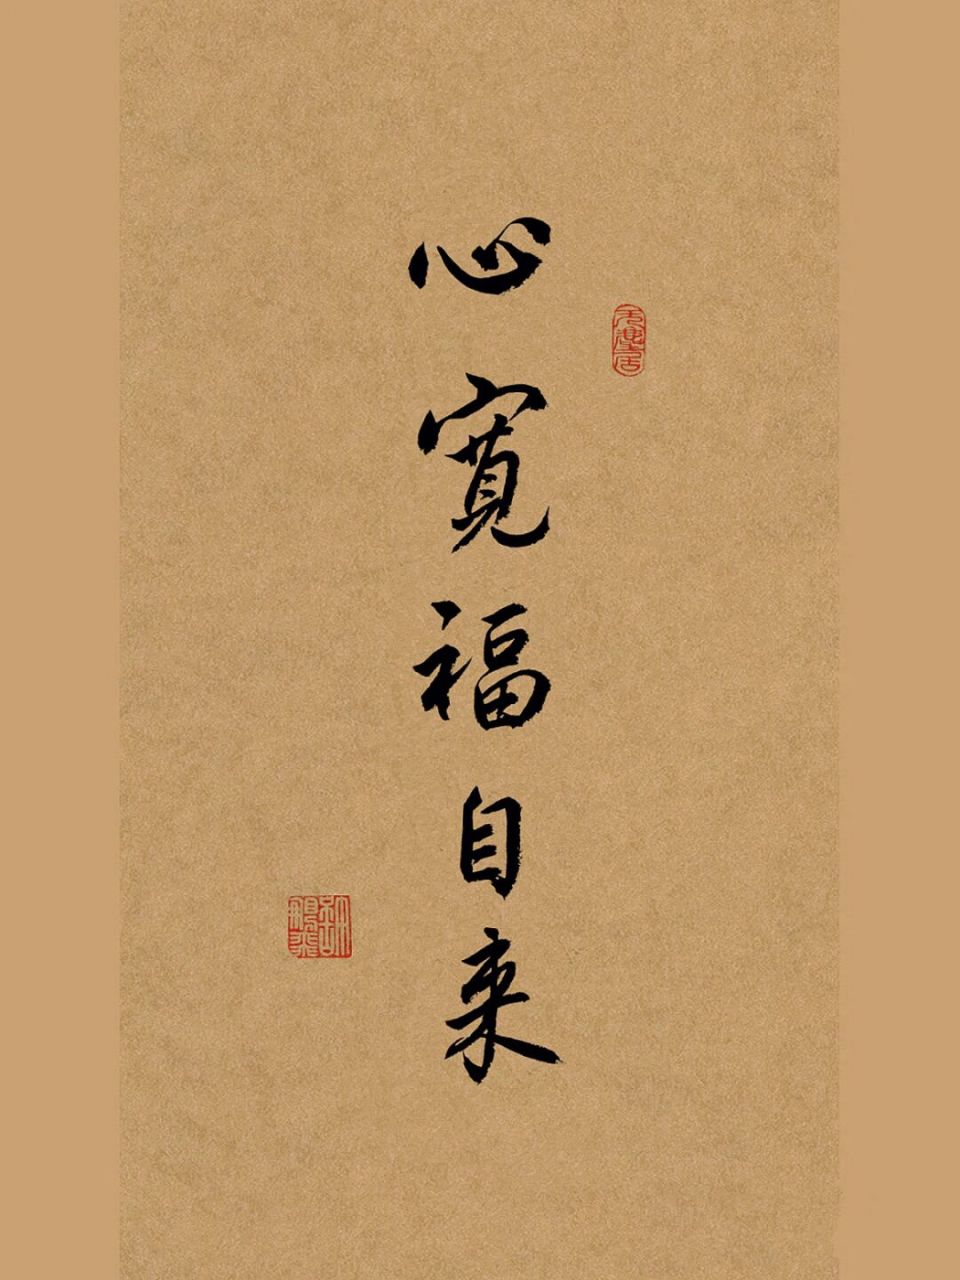 心寬福自来